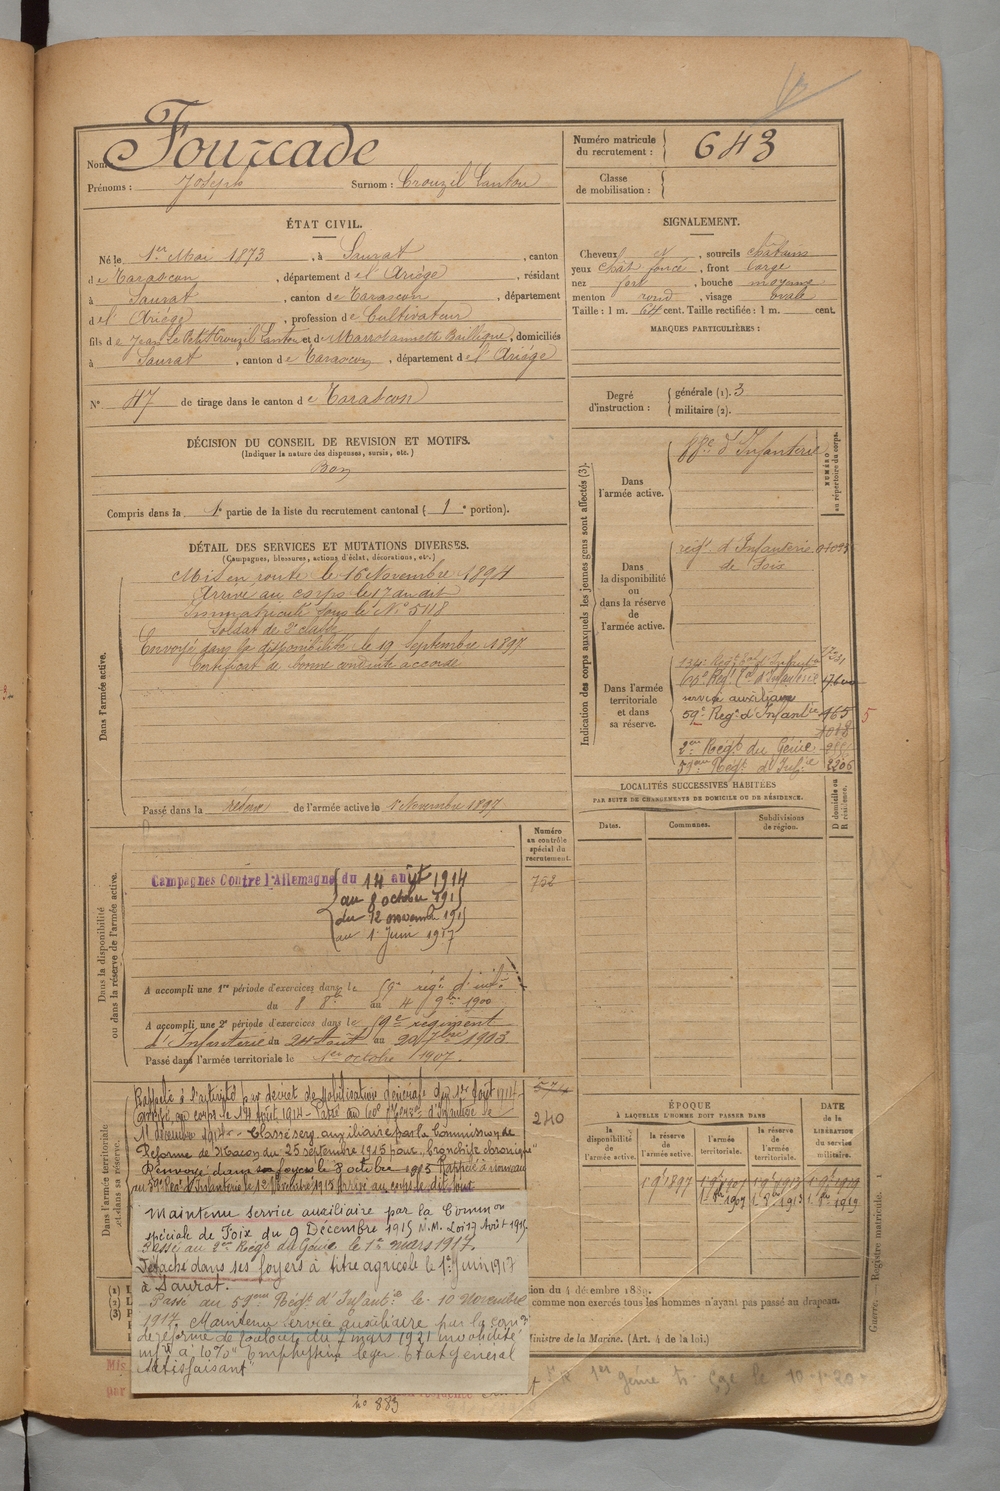 Nom: Fourcade
Prénoms : Joseph Surnom : Crouzil Cantou
Numéro matricule du recrutement : 643
Classe de mobilisation :
ÉTAT CIVIL.
Né le 1er Mai 1873, à Saurat, canton
de Tarascon, département de l'Ariège, résidant
à Saurat, canton de Tarascon, département
de l'Ariège, profession de Cultivateur
fils de Jean Le Petit Crouzil Cantou et de, domiciliés
à Saurat, canton de Tarascon, département de l'Ariège
N° 47 de tirage dans le canton de Tarascon
SIGNALEMENT.
Cheveux et, sourcils châtains
yeux chât foncé, front large
nez fort, bouche moyenne
menton rond, visage ovale
Taille : 1 m. 64 cent. Taille rectifiée : 1 m. cent.
MARQUES PARTICULIÈRES :
Degré d'instruction : générale (1). 3
militaire (2).
DÉCISION DU CONSEIL DE REVISION ET MOTIFS.
(Indiquer la nature des dispenses, sursis, etc.)
Bon
Compris dans la 1e partie de la liste du recrutement cantonal ( 1e portion).
DÉTAIL DES SERVICES ET MUTATIONS DIVERSES.
(Campagnes, blessures, actions d'éclat, décorations, etc.)
Dans l'armée active.
Mis en route le 16 Novembre 1894
Arrivé au corps le 17 du dit
Immatriculé sous le N° 5118
Soldat de 2e classe
Envoyé dans la disponibilité le 19 Septembre 1897
Certificat de bonne conduite accordé
Passé dans la réserve de l'armée active le 1 Novembre 1897
Indication des corps auxquels les jeunes gens sont affectés (3).
NUMÉRO au répertoire du corps.
Dans l'armée active.
d'Infanterie
Dans la disponibilité ou dans la réserve de l'armée active.
régt d'Infanterie
de Foix
Dans l'armée territoriale et dans sa réserve.
service auxiliaire
59e Régt d'Infantie 465 5
2em Régt du Génie
59em Régt d'Infie 2206
LOCALITÉS SUCCESSIVES HABITÉES
PAR SUITE DE CHANGEMENTS DE DOMICILE OU DE RÉSIDENCE.
Dates. Communes. Subdivisions de région.
D domicile ou R résidence.
Numéro au contrôle spécial du recrutement.
752
Dans la disponibilité ou dans la réserve de l'armée active.
Campagnes Contre l'Allemagne du 14 août 1914
au 8 octobre 1915
du 12 novembre 1915
au 1 Juin 1917
A accompli une 1re période d'exercices dans le 59e régt d'infie
du 8 8bre au 4 9bre 1900
A accompli une 2e période d'exercices dans le 59e régiment
d'Infanterie du 24 Août au 20 7bre 1903
Passé dans l'armée territoriale le 1er octobre 1907.
Dans l'armée territoriale et dans sa réserve.
574
240
Rappelé à l'activité par décret de Mobilisation générale du 1er Août 1914
Arrivé au corps le 14 août 1914 - Passé au d'Infanterie le
1er décembre 1914 - Classé serv. auxiliaire par la Commission de
Réforme de Macon du 25 septembre 1915 pour "Bronchite chronique"
Renvoyé dans ses foyers le 8 octobre 1915 Rappelé à nouveau
au 59e Régt d'Infanterie le 12 Novembre 1915 Arrivé au corps le dit jour
Maintenu service auxiliaire par la Common
spéciale de Foix du 9 Décembre 1915 N.M. Loi 17 Août 1915
Passé au 2em Régt du Génie le 1er mars 1917.
Détaché dans ses foyers à titre agricole le 1er Juin 1917
à Saurat.
Passé au 59em Régt d'Infantie le 10 Novembre
1917. Maintenu service auxiliaire par la Comon
de réforme de Toulouse du 7 mars 1921 invalidité
infre à 10% "Emphysème léger Etat général
satisfaisant"
ÉPOQUE
À LAQUELLE L'HOMME DOIT PASSER DANS
DATE de la LIBÉRATION du service militaire.
la disponibilité de l'armée active. la réserve de l'armée active. l'armée territoriale. la réserve de l'armée territoriale.
1 9bre 1897
1 8bre 1907 1 8bre 1913 1 8bre 1919
(1)
(2)
(3)
tion du 4 décembre 1889.
comme non exercés tous les hommes n'ayant pas passé au drapeau.
Ministre de la Marine. (Art. 4 de la loi.)
Mis
par
n° 883
1er génie le 10-1-20
Guerre. — Registre matricule. 1